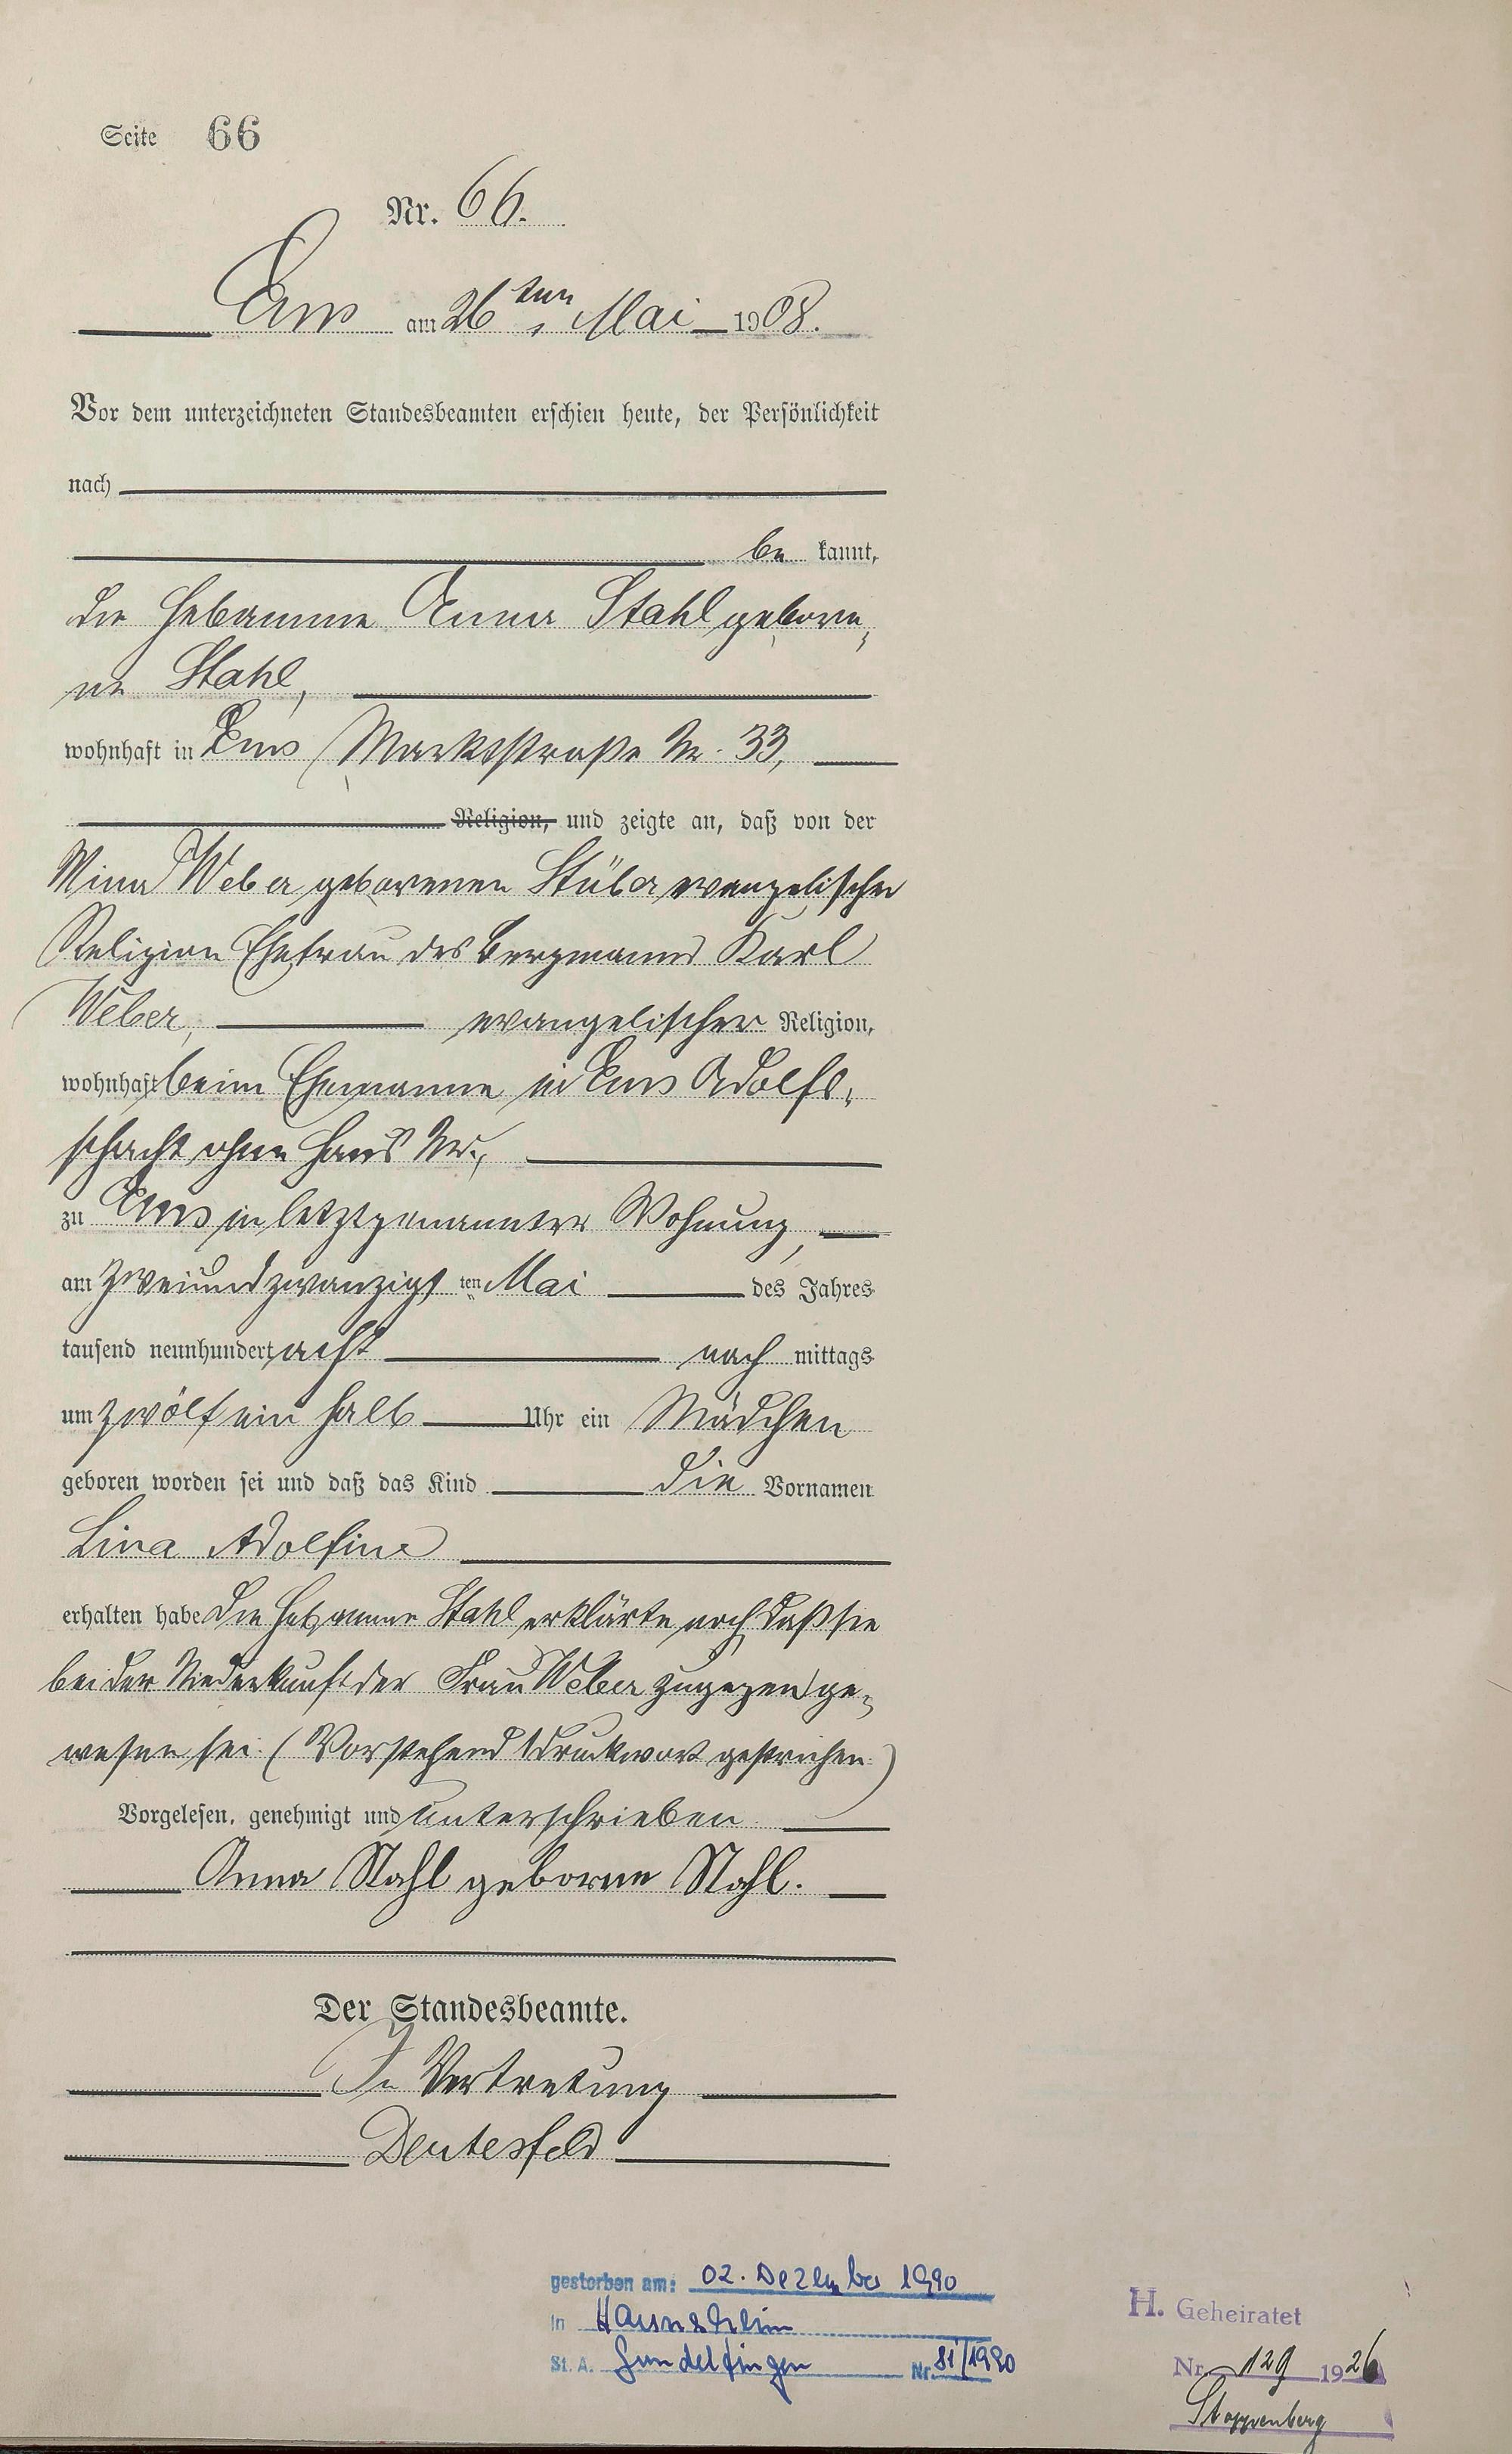 Seite 66
Nr. 66.
Ems am 26ten Mai 1908.
Vor dem unterzeichneten Standesbeamten erschien heute, der Persönlichkeit
nach
be kannt,
die Hebamme Anna Stahl gebore,
ne Stahl,
wohnhaft in Ems Marktstraße Nr. 33,
Religion, und zeigte an, daß von der
Mina Weber geborenen Stüber evangelischer
Religion Ehefrau des Bergmanns Karl
Weber, evangelischer Religion,
wohnhaft beim Ehemanne in Ems Adolfs,
schacht ohne Haus Nr.,
zu Ems in letztgenannter Wohnung,
am zweiundzwanzigsten Mai des Jahres
tausend neunhundert acht nach mittags
um zwölf ein halb Uhr ein Mädchen
geboren worden sei und daß das Kind die Vornamen
Lina Adolfine
erhalten habe Die Hebamme Stahl erklärte noch, daß sie
bei der Niederkunft der Frau Weber zugegen ge,
wesen sei. (Vorstehend 1 Druckwort gestrichen.)
Vorgelesen, genehmigt und unterschrieben
Anna Stahl geborene Stahl.
Der Standesbeamte.
In Vertretung
Deutesfeld
gestorben am: 02. Dezember 1990
in Haunsheim
St. A. Gundelfingen Nr. 81/1990
H. Geheiratet
Nr. 129 1926
Stoppenberg